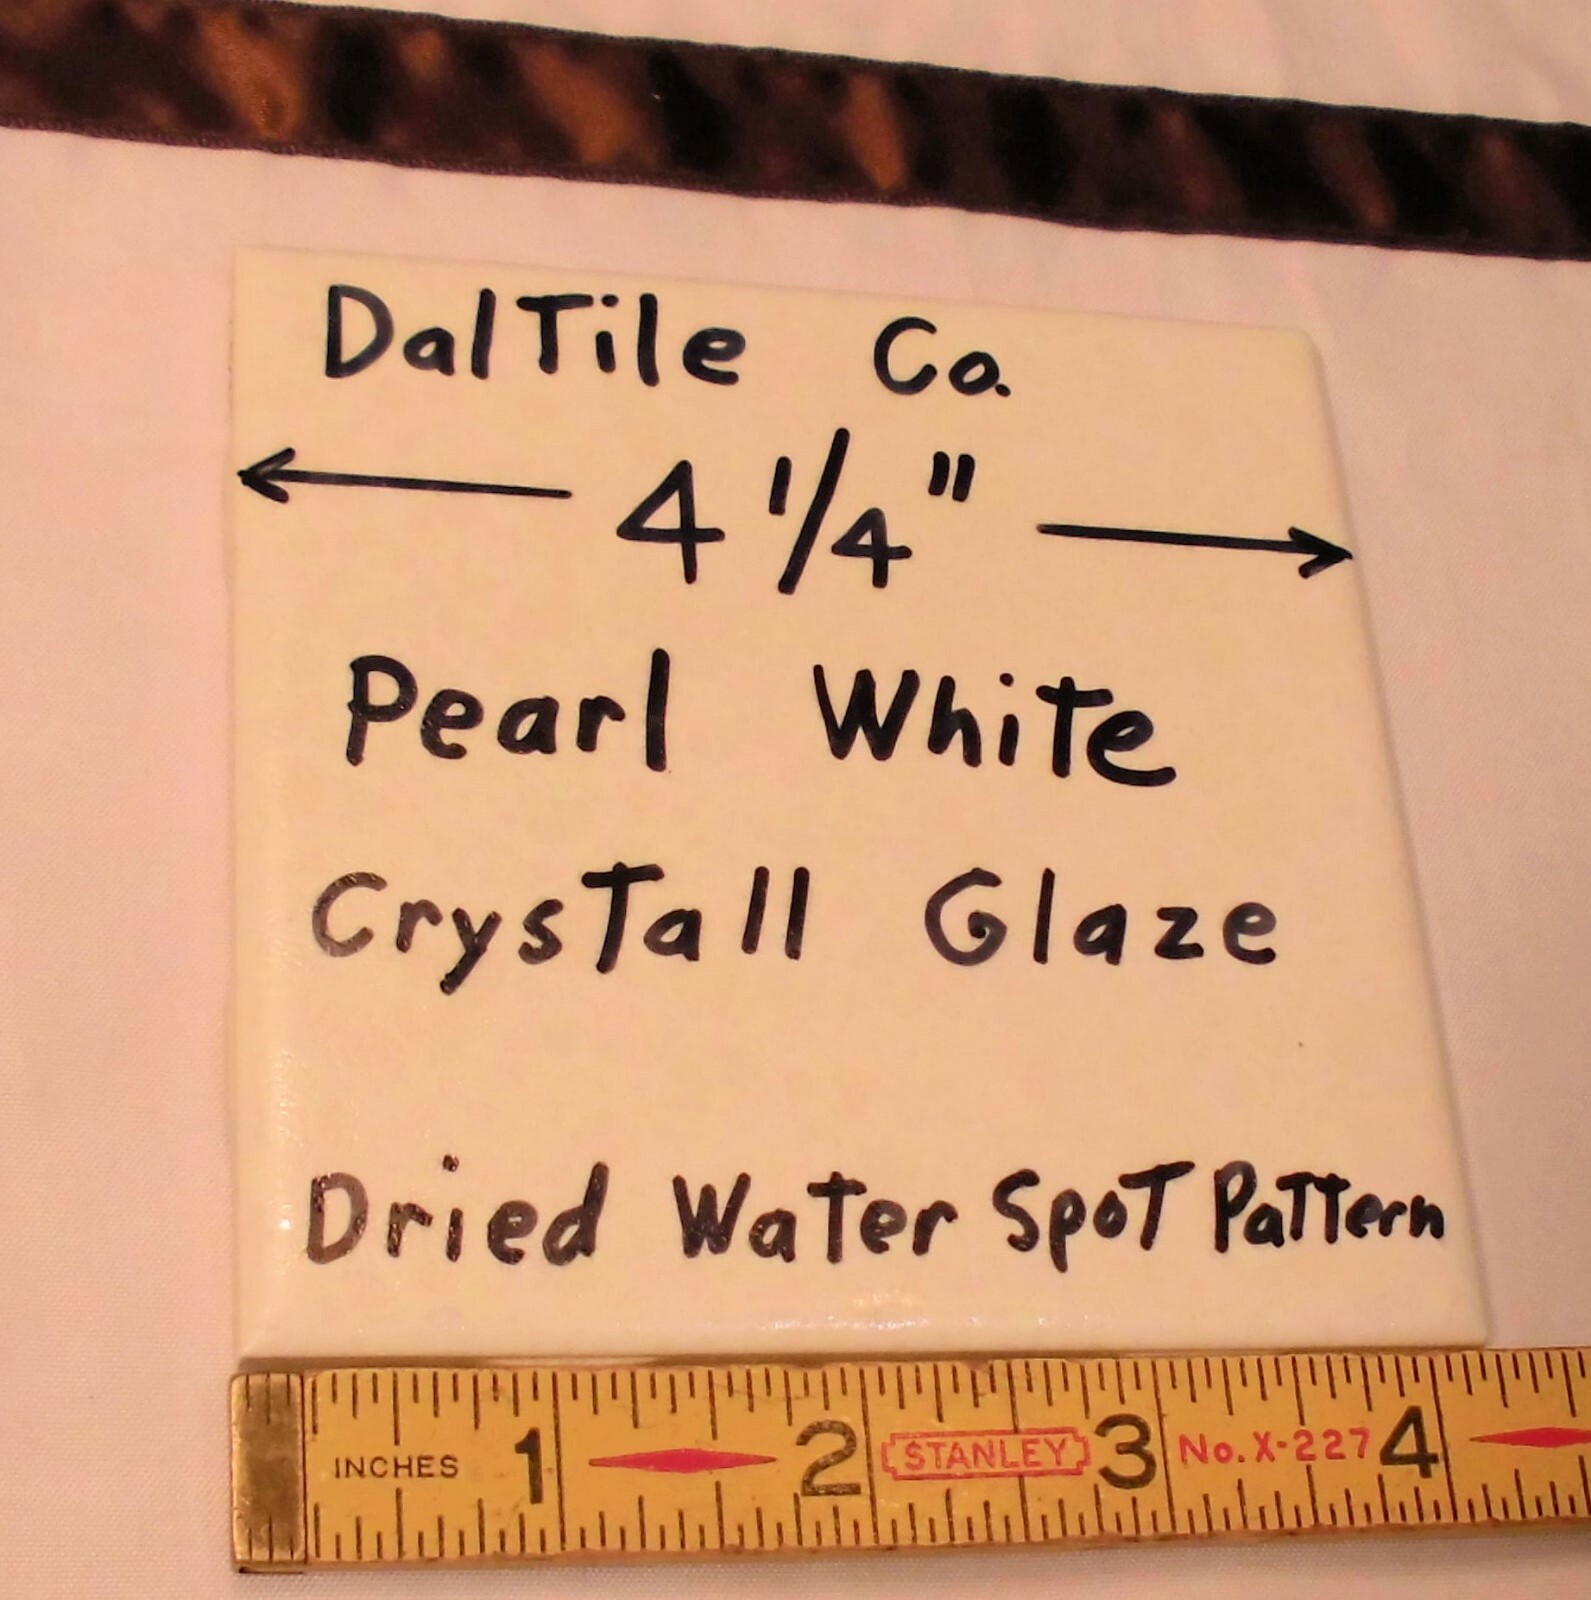 DalTile Co.
4 1/4"
Pearl White
Crystall Glaze
Dried Water Spot Pattern
INCHES 1 2 STANLEY 3 No. X-227 4